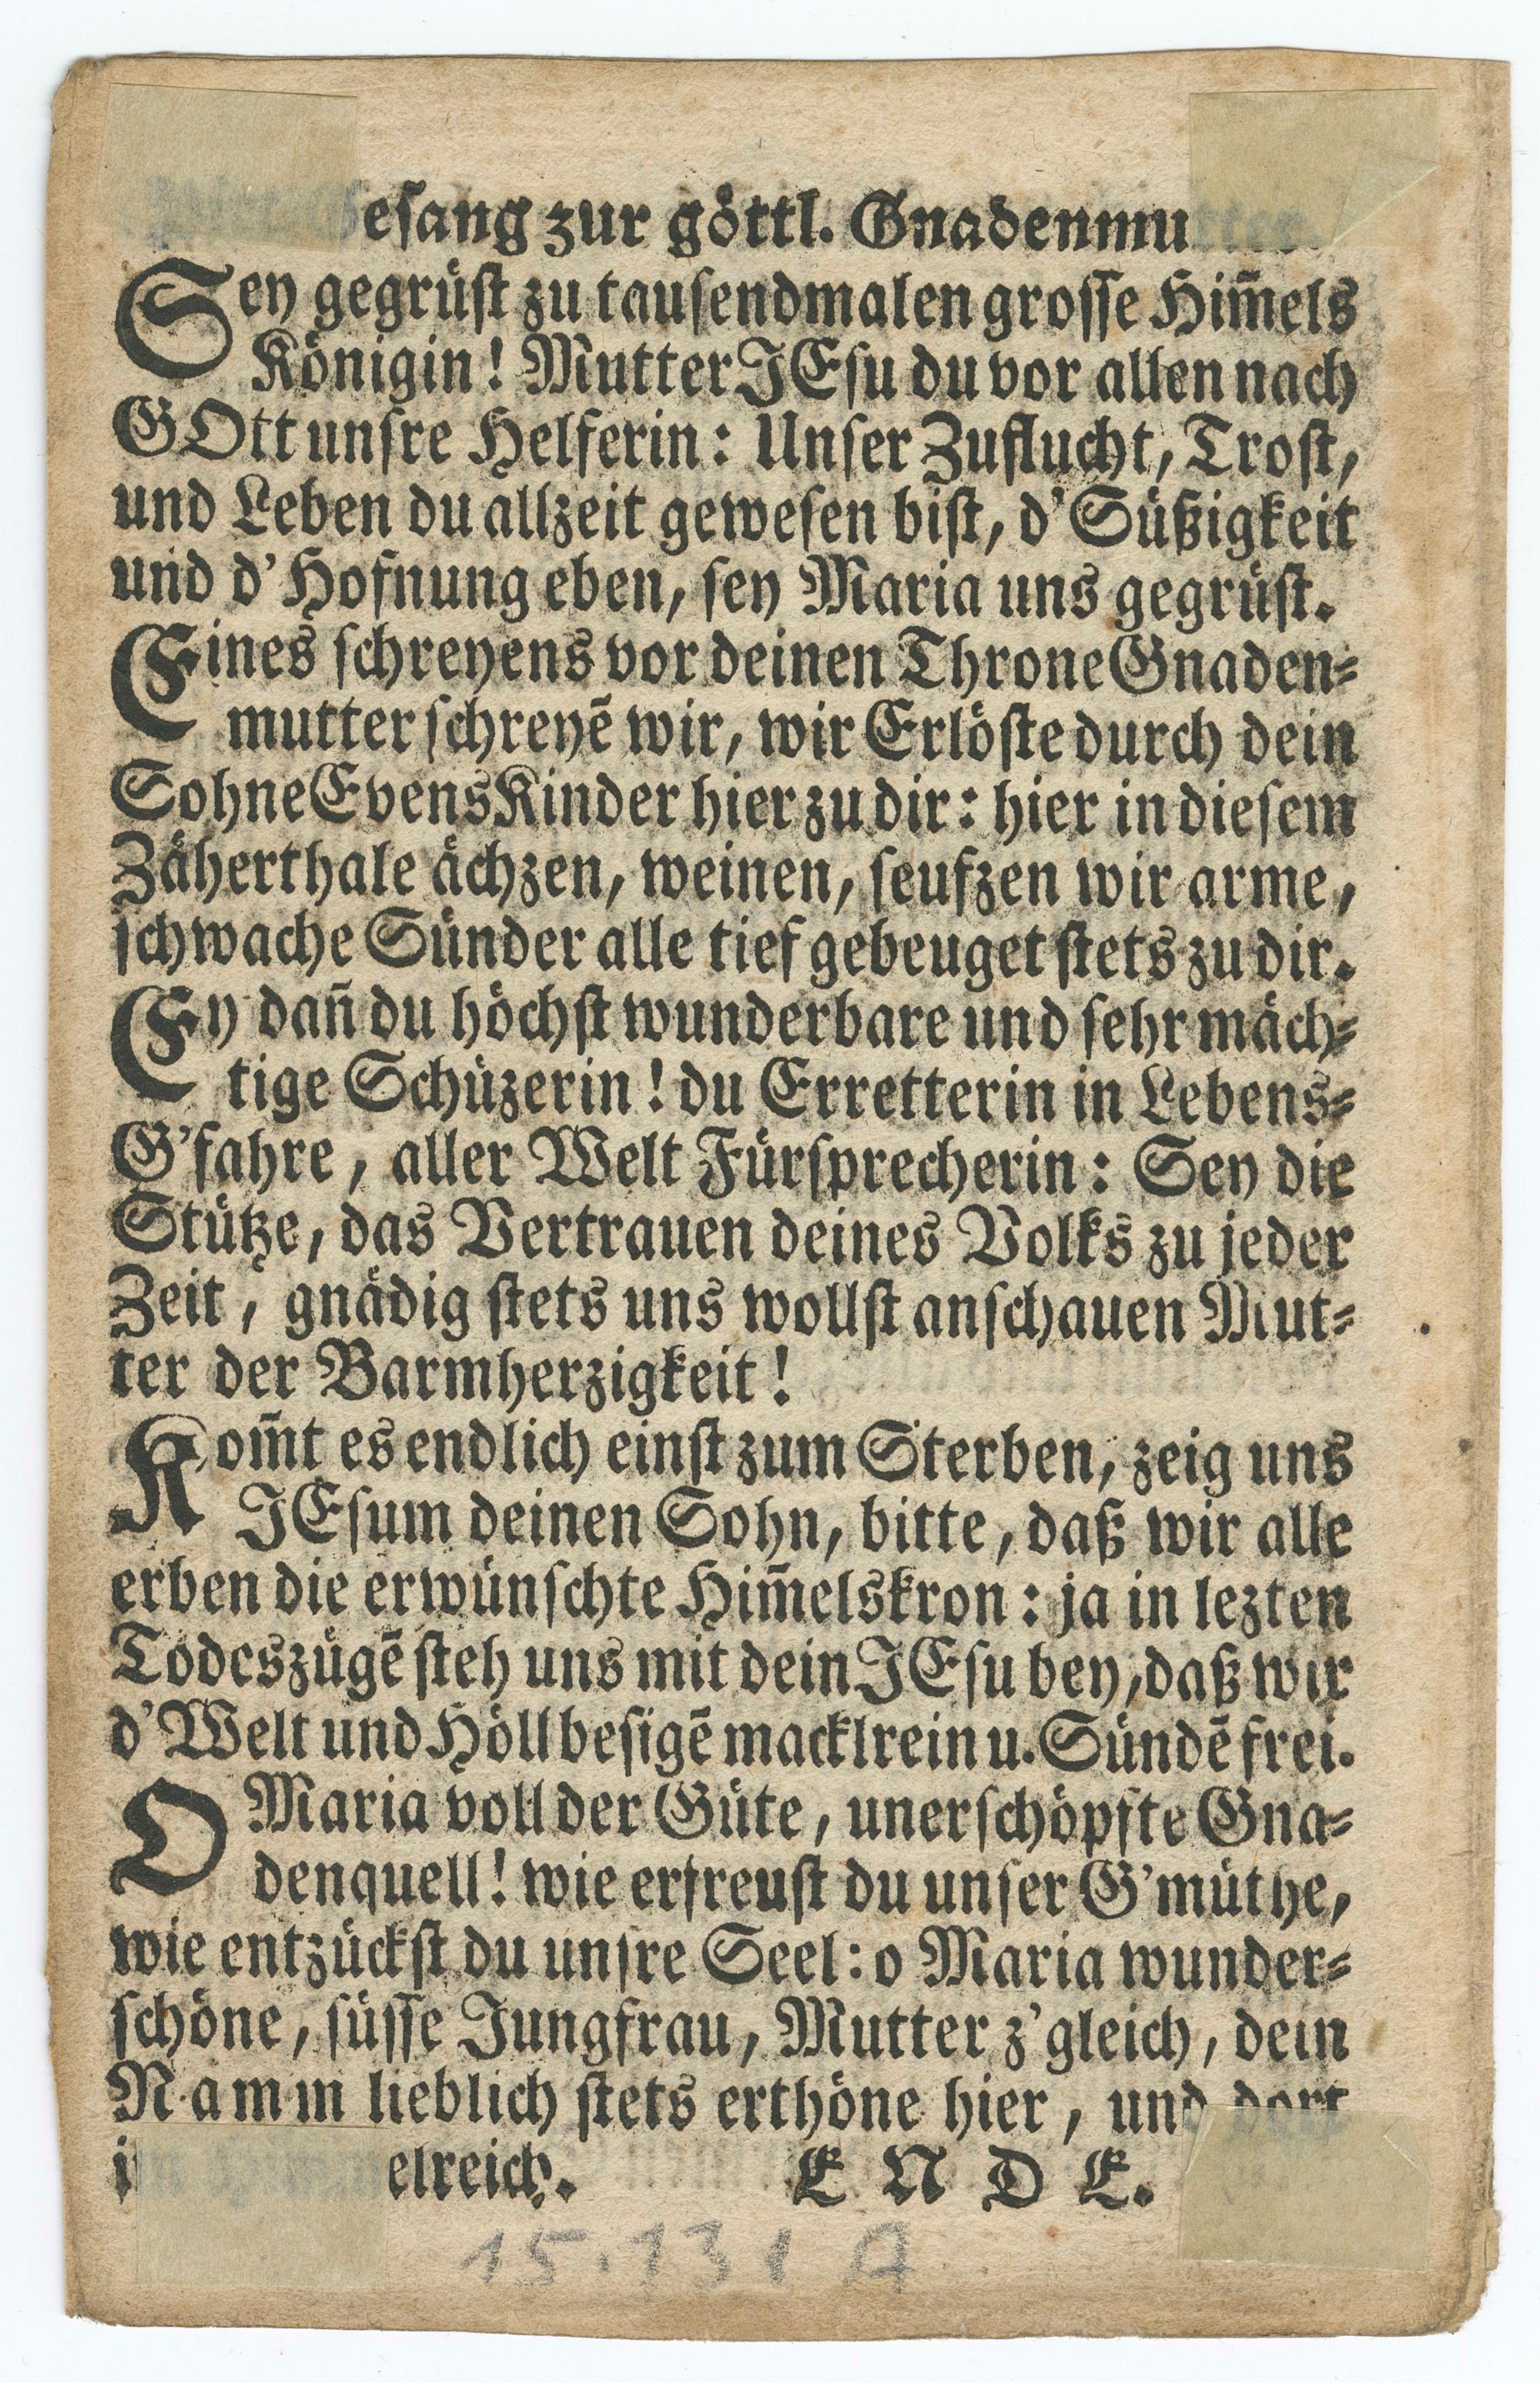 esang zur göttl. Gnadenmu
Sey gegrüst zu tausendmalen grosse Him̄els
Königin! Mutter JEsu du vor allen nach
GOtt unsre Helferin: Unser Zuflucht, Trost,
und Leben du allzeit gewesen bist, d'Süßigkeit
und d'Hofnung eben, sey Maria uns gegrüst.
Eines schreyens vor deinen Throne Gnaden-
mutter schreyē wir, wir Erlöste durch dein
Sohne Evens Kinder hier zu dir: hier in diesem
Zäherthale ächzen, weinen, seufzen wir arme,
schwache Sünder alle tief gebeuget stets zu dir.
Ey dan̄ du höchst wunderbare und sehr mäch-
tige Schüzerin! du Erretterin in Lebens-
G'fahre, aller Welt Fürsprecherin: Sey die
Stütze, das Vertrauen deines Volks zu jeder
Zeit, gnädig stets uns wollst anschauen Mut-
ter der Barmherzigkeit!
Kom̄t es endlich einst zum Sterben, zeig uns
JEsum deinen Sohn, bitte, daß wir alle
erben die erwünschte Him̄elskron: ja in lezten
Todeszügē steh uns mit dein JEsu bey, daß wir
d'Welt und Höll besigē macklrein u. Sündē frei.
O Maria voll der Güte, unerschöpfte Gna-
denquell! wie erfreust du unser G'müthe,
wie entzückst du unsre Seel: o Maria wunder-
schöne, süsse Jungfrau, Mutter z'gleich, dein
Namm lieblich stets erthöne hier, und dort
elreich. ENDE.
15.131 A